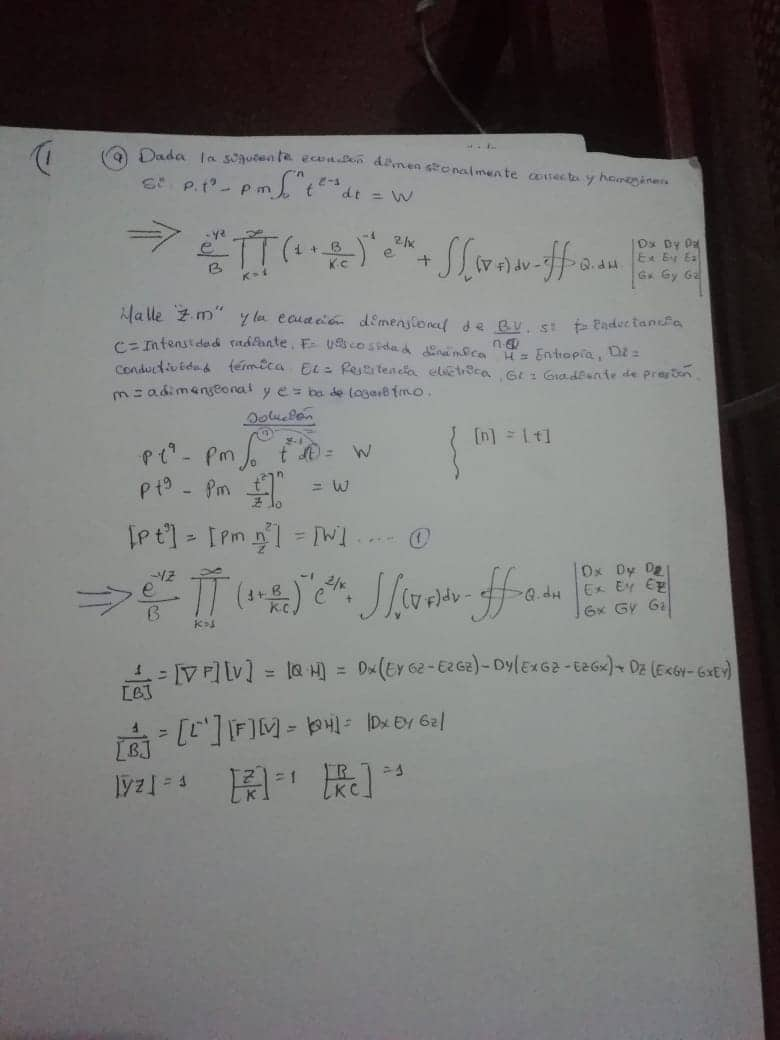 1
9 Dada la siguiente ecuación dimensionalmente correcta y homogénea
si: P.t⁹ - Pm∫₀ⁿ t^(z-1) dt = W
⇒ e^(-yz)/B ∏_(K=1)^∞ (1 + B/K.C)^(-1) e^(z/K) + ∫∫∫_v (∇F) dv - ∯ Q.dH |Dx Dy Dz
Ex Ey Ez
Gx Gy Gz|
Halle "z.m" y la ecuación dimensional de B.V/n.Q si t = Inductancia
C = Intensidad radiante, F = viscosidad dinámica, H = Entropía, Dz =
conductividad térmica. Ei = Resistencia eléctrica, Gi = Gradiente de presión,
m = adimensional y e = ba de logaritmo.
Solución
Pt⁹ - Pm∫₀ⁿ t^(z-1) dt = W { [n] = [t]
Pt⁹ - Pm t^z/z]₀ⁿ = W
[Pt⁹] = [Pm n^z/z] = [W] .... ①
⇒ e^(-yz)/B ∏_(K=1)^∞ (1 + B/K.C)^(-1) e^(z/K) + ∫∫∫_v (∇F) dv - ∯ Q.dH |Dx Dy Dz
Ex Ey Ez
Gx Gy Gz|
1/[B] = [∇F][V] = [Q.H] = Dx(Ey Gz - EzGz) - Dy(ExGz - EzGx) + Dz(ExGy - GxEy)
1/[B] = [L⁻¹][F][V] = [QH] = |Dx Ey Gz|
[yz] = 1 [z/K] = 1 [B/KC] = 1